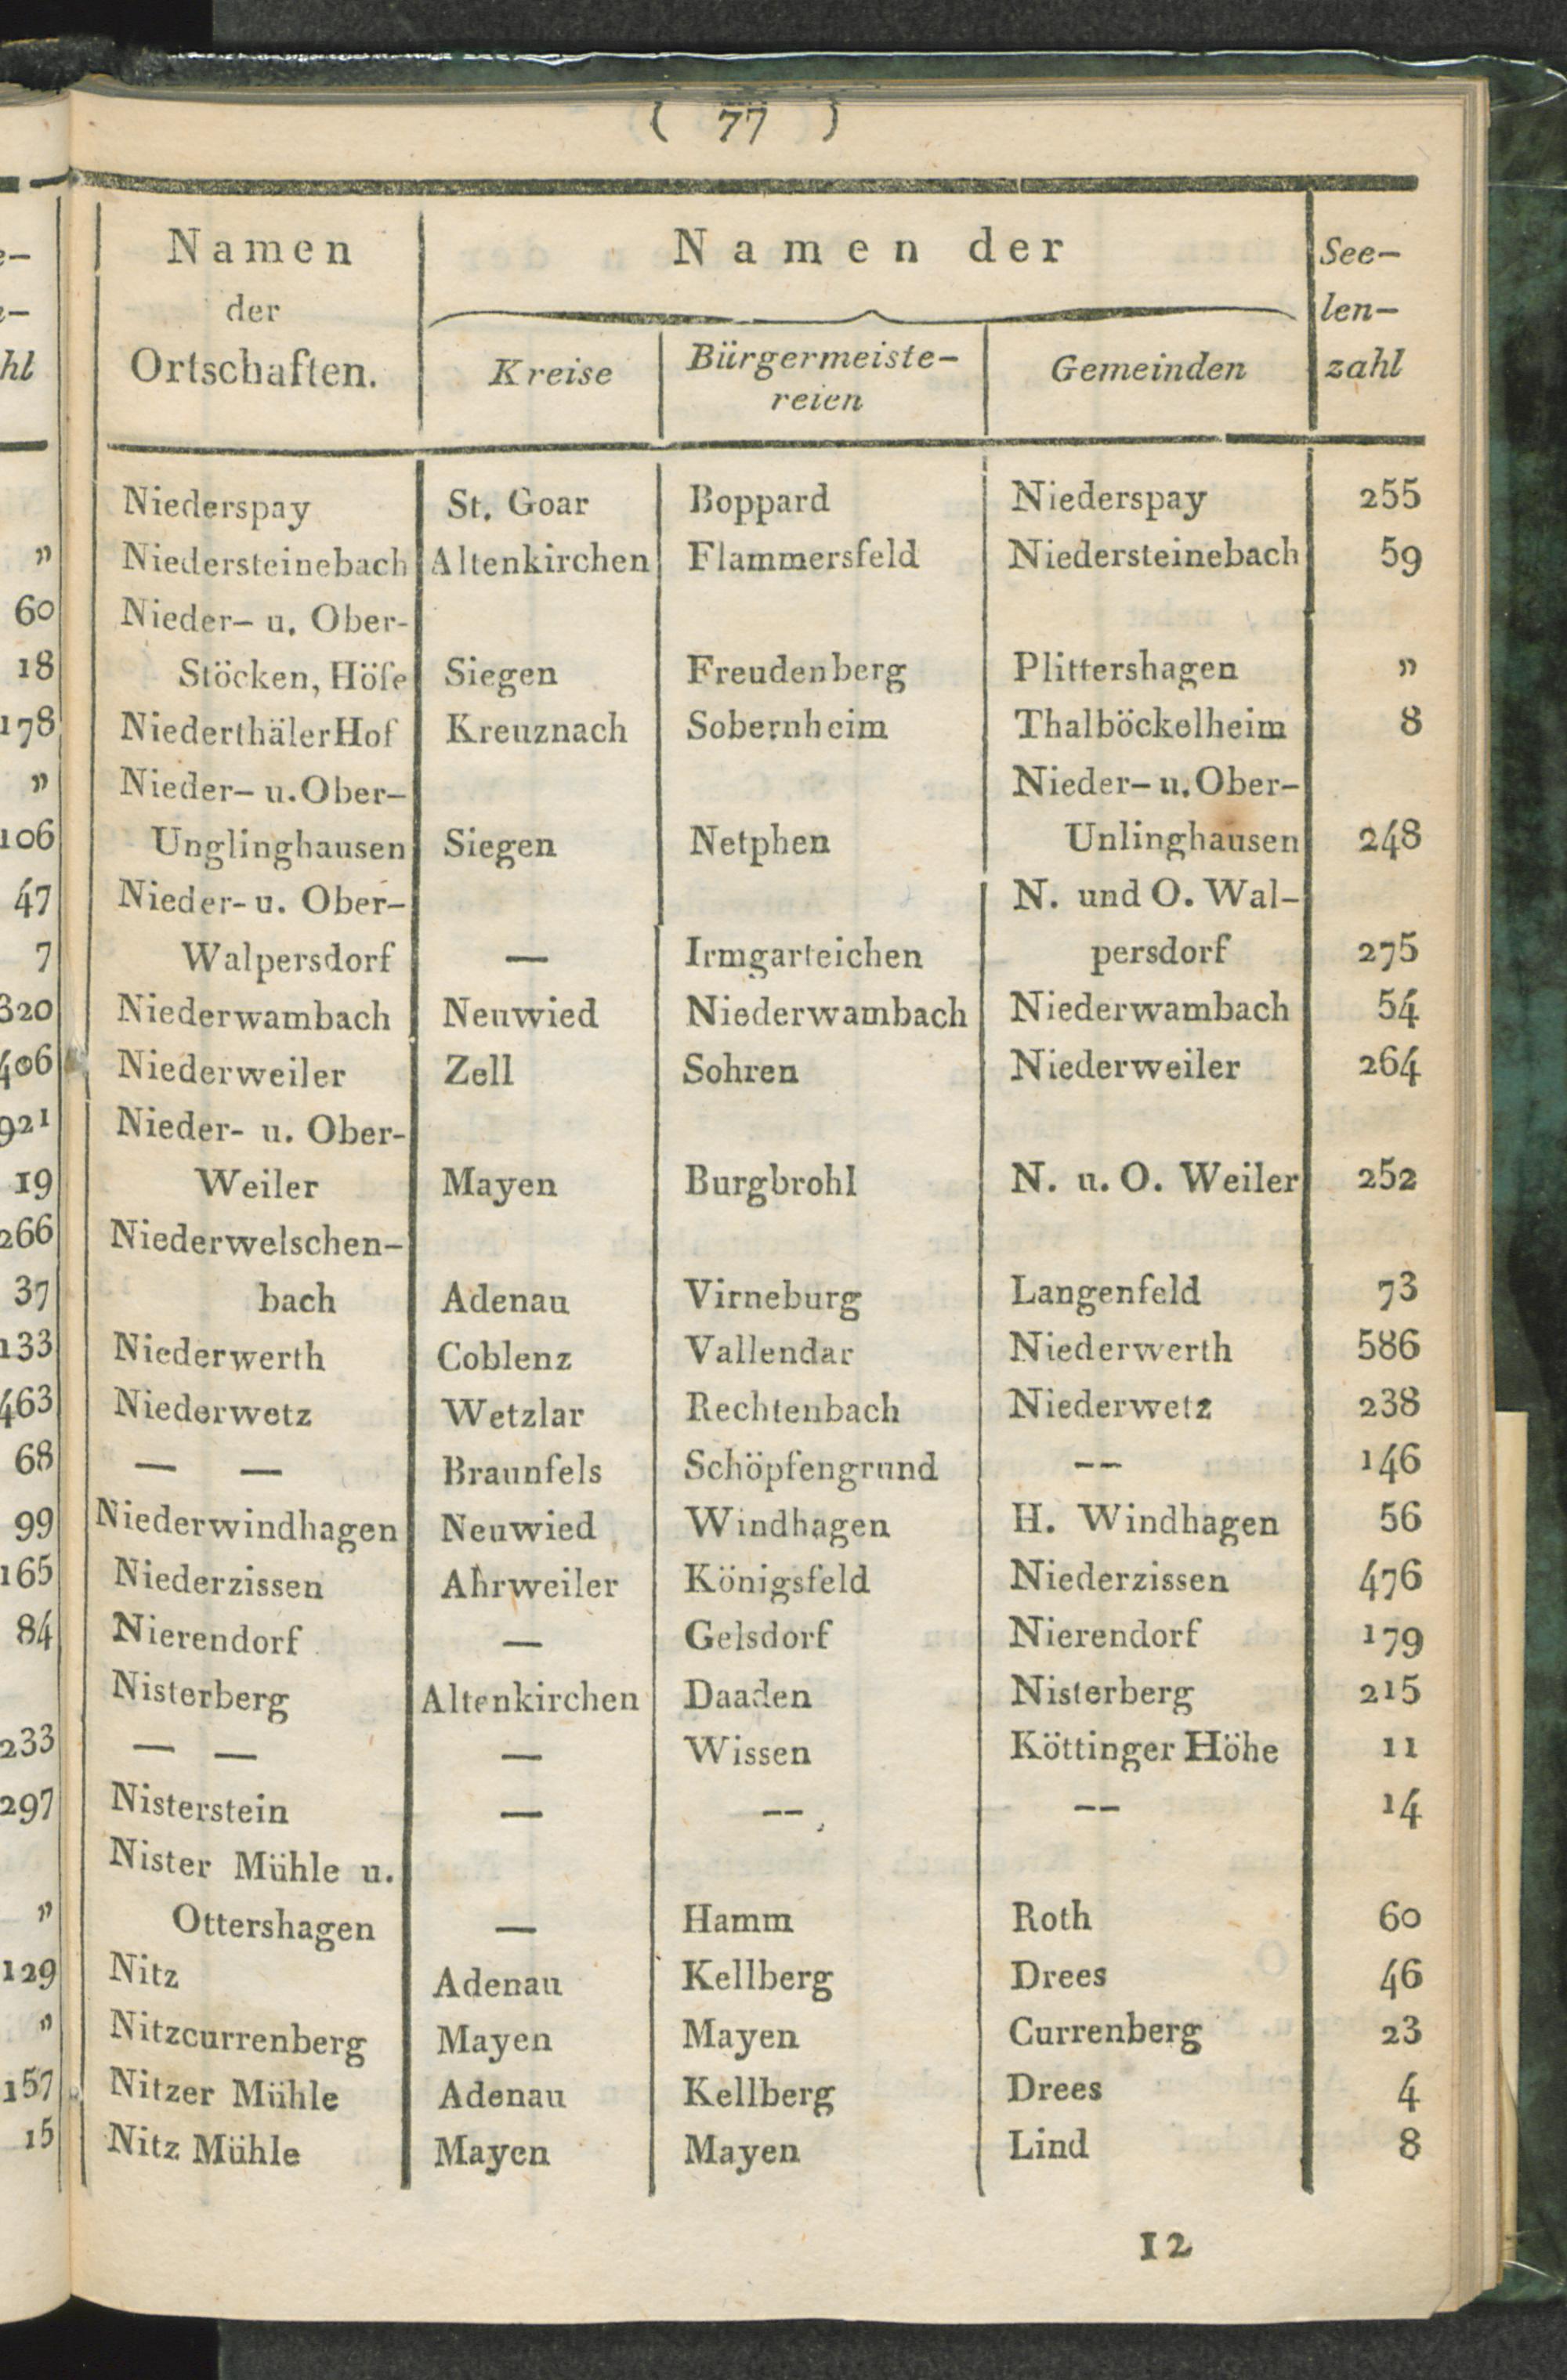 ( 77 )
Namen der Ortschaften. | Namen der | Seelenzahl
Kreise | Bürgermeiste-reien | Gemeinden
Niederspay | St. Goar | Boppard | Niederspay | 255
Niedersteinebach | Altenkirchen | Flammersfeld | Niedersteinebach | 59
Nieder- u. Ober-
Stöcken, Höfe | Siegen | Freudenberg | Plittershagen | "
NiederthälerHof | Kreuznach | Sobernheim | Thalböckelheim | 8
Nieder- u. Ober- | Nieder- u. Ober-
Unglinghausen | Siegen | Netphen | Unlinghausen | 248
Nieder- u. Ober- | N. und O. Wal-
Walpersdorf | — | Irmgarteichen | persdorf | 275
Niederwambach | Neuwied | Niederwambach | Niederwambach | 54
Niederweiler | Zell | Sohren | Niederweiler | 264
Nieder- u. Ober-
Weiler | Mayen | Burgbrohl | N. u. O. Weiler | 252
Niederwelschen-
bach | Adenau | Virneburg | Langenfeld | 73
Niederwerth | Coblenz | Vallendar | Niederwerth | 586
Niederwetz | Wetzlar | Rechtenbach | Niederwetz | 238
— — | Braunfels | Schöpfengrund | -- | 146
Niederwindhagen | Neuwied | Windhagen | H. Windhagen | 56
Niederzissen | Ahrweiler | Königsfeld | Niederzissen | 476
Nierendorf | — | Gelsdorf | Nierendorf | 179
Nisterberg | Altenkirchen | Daaden | Nisterberg | 215
— — | — | Wissen | Köttinger Höhe | 11
Nisterstein | — | -- | -- | 14
Nister Mühle u.
Ottershagen | — | Hamm | Roth | 60
Nitz | Adenau | Kellberg | Drees | 46
Nitzcurrenberg | Mayen | Mayen | Currenberg | 23
Nitzer Mühle | Adenau | Kellberg | Drees | 4
Nitz Mühle | Mayen | Mayen | Lind | 8
12